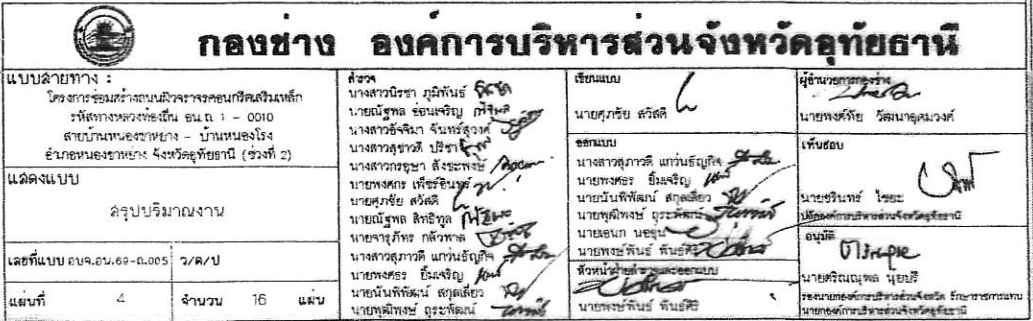 กองช่าง องค์การบริหารส่วนจังหวัดอุทัยธานี
แบบสายทาง :
โครงการซ่อมสร้างถนนผิวจราจรคอนกรีตเสริมเหล็ก
รหัสทางหลวงท้องถิ่น อน.ถ 1 - 0010
สายบ้านหนองขาหย่าง - บ้านหนองโรง
อำเภอหนองขาหย่าง จังหวัดอุทัยธานี (ช่วงที่ 2)
แสดงแบบ
สรุปปริมาณงาน
เลขที่แบบ อบจ.อน.69-ถ.005 ว/ด/ป
แผ่นที่ 4 จำนวน 16 แผ่น
สำรวจ
นางสาวนิรชา ภูมิพันธ์
นายณัฐพล อ่อนเจริญ
นางสาวอัจจิมา จันทร์สุวงศ์
นางสาวสุชาวดี ปรีชา
นางสาวกรอุษา สังขะพงษ์
นายพงศกร เพ็ชร์อินทร์
นายศุภชัย สวัสดี
นายณัฐพล สิทธิทูล
นายจารุภัทร กลัวพาล
นางสาวสุภาวดี แกว่นธัญกิจ
นายพงศธร ยิ้มเจริญ
นายนันพิพัฒน์ สกุลเลี่ยว
นายพุฒิพงษ์ ถุระพัฒน์
เขียนแบบ
นายศุภชัย สวัสดี
ออกแบบ
นางสาวสุภาวดี แกว่นธัญกิจ
นายพงศธร ยิ้มเจริญ
นายนันพิพัฒน์ สกุลเลี่ยว
นายพุฒิพงษ์ ถุระพัฒน์
นายเอนก นอขุน
นายพงษ์พันธ์ พันธศิริ
หัวหน้าฝ่ายสำรวจและออกแบบ
นายพงษ์พันธ์ พันธศิริ
ผู้อำนวยการกองช่าง
นายพงศ์ทัย วัฒนาอุดมวงศ์
เห็นชอบ
นายชรินทร์ ไรยะ
ปลัดองค์การบริหารส่วนจังหวัดอุทัยธานี
อนุมัติ
นายตริณณุพล นุ้ยปรี
รองนายกองค์การบริหารส่วนจังหวัด รักษาราชการแทน
นายกองค์การบริหารส่วนจังหวัดอุทัยธานี